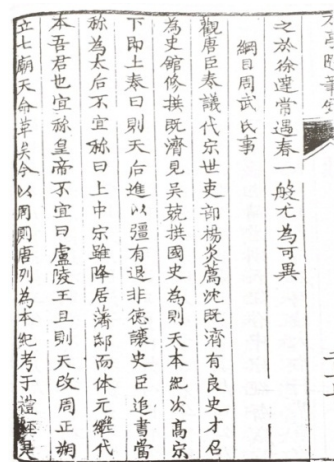 之於徐達常遇春一般尤為可異
綱目周武氏事
觀唐臣奏議代宗世吏部楊炎薦沈既濟有良史才召
為史館修撰既濟見吳兢撰國史為則天本紀次髙宗
下即上奏曰則天后進以彊有退非德讓史臣追書當
称為太后不宜称曰上中宗雖降居藩邸而体元繼代
本吾君也宜称皇帝不宜曰盧陵王且則天改周正朔
立七廟天命革矣今以周厠唐列為本紀考于禮經是